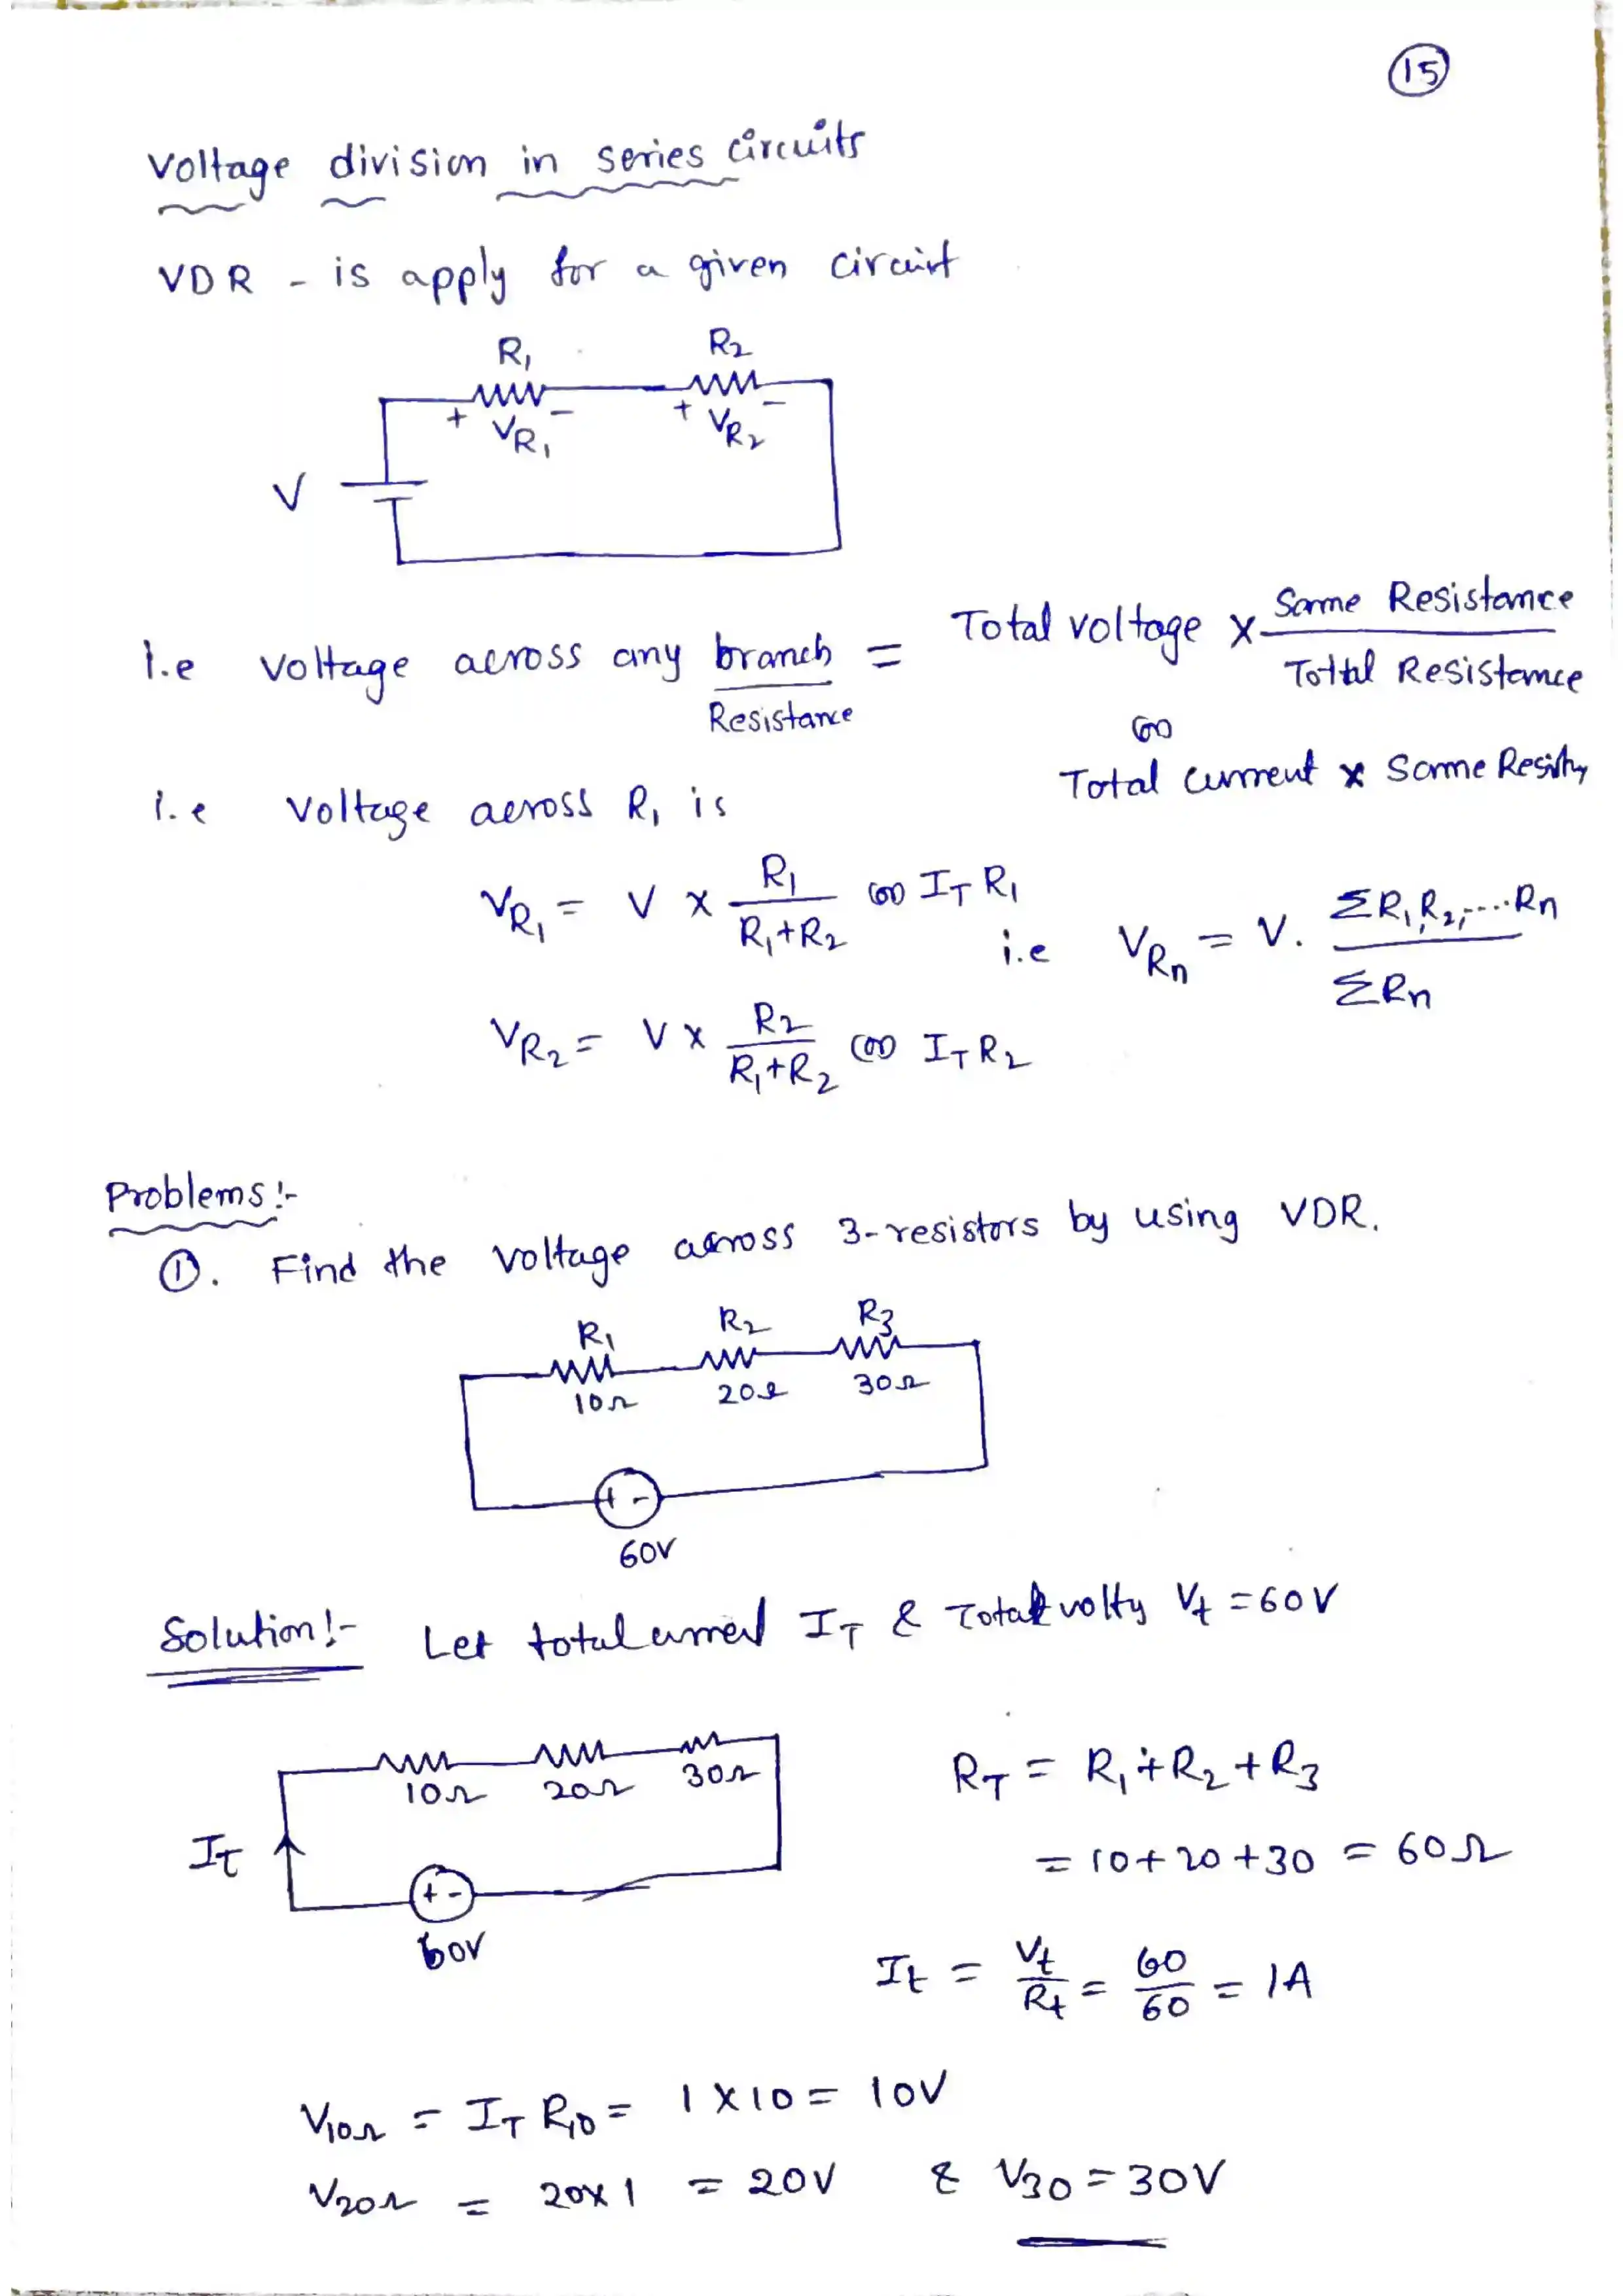 15
Voltage division in series circuits
VDR - is apply for a given circuit
R1 R2
+ VR1 - + VR2 -
V
i.e voltage across any branch = Total voltage x Same Resistance / Total Resistance
Resistance
(or)
Total current x Same Resist
i.e Voltage across R1 is
VR1 = V x R1 / R1+R2 (or) IT R1
i.e VRn = V. ΣR1,R2,....Rn / ΣRn
VR2 = V x R2 / R1+R2 (or) IT R2
Problems:-
①. Find the voltage across 3-resistors by using VDR.
R1 R2 R3
10Ω 20Ω 30Ω
+ -
60V
Solution:- Let total current IT & Total volty Vt = 60V
10Ω 20Ω 30Ω
RT = R1+R2+R3
= 10+20+30 = 60Ω
It
+ -
60V
It = Vt / Rt = 60 / 60 = 1A
V10Ω = IT R10 = 1 X 10 = 10V
V20Ω = 20x1 = 20V & V30 = 30V